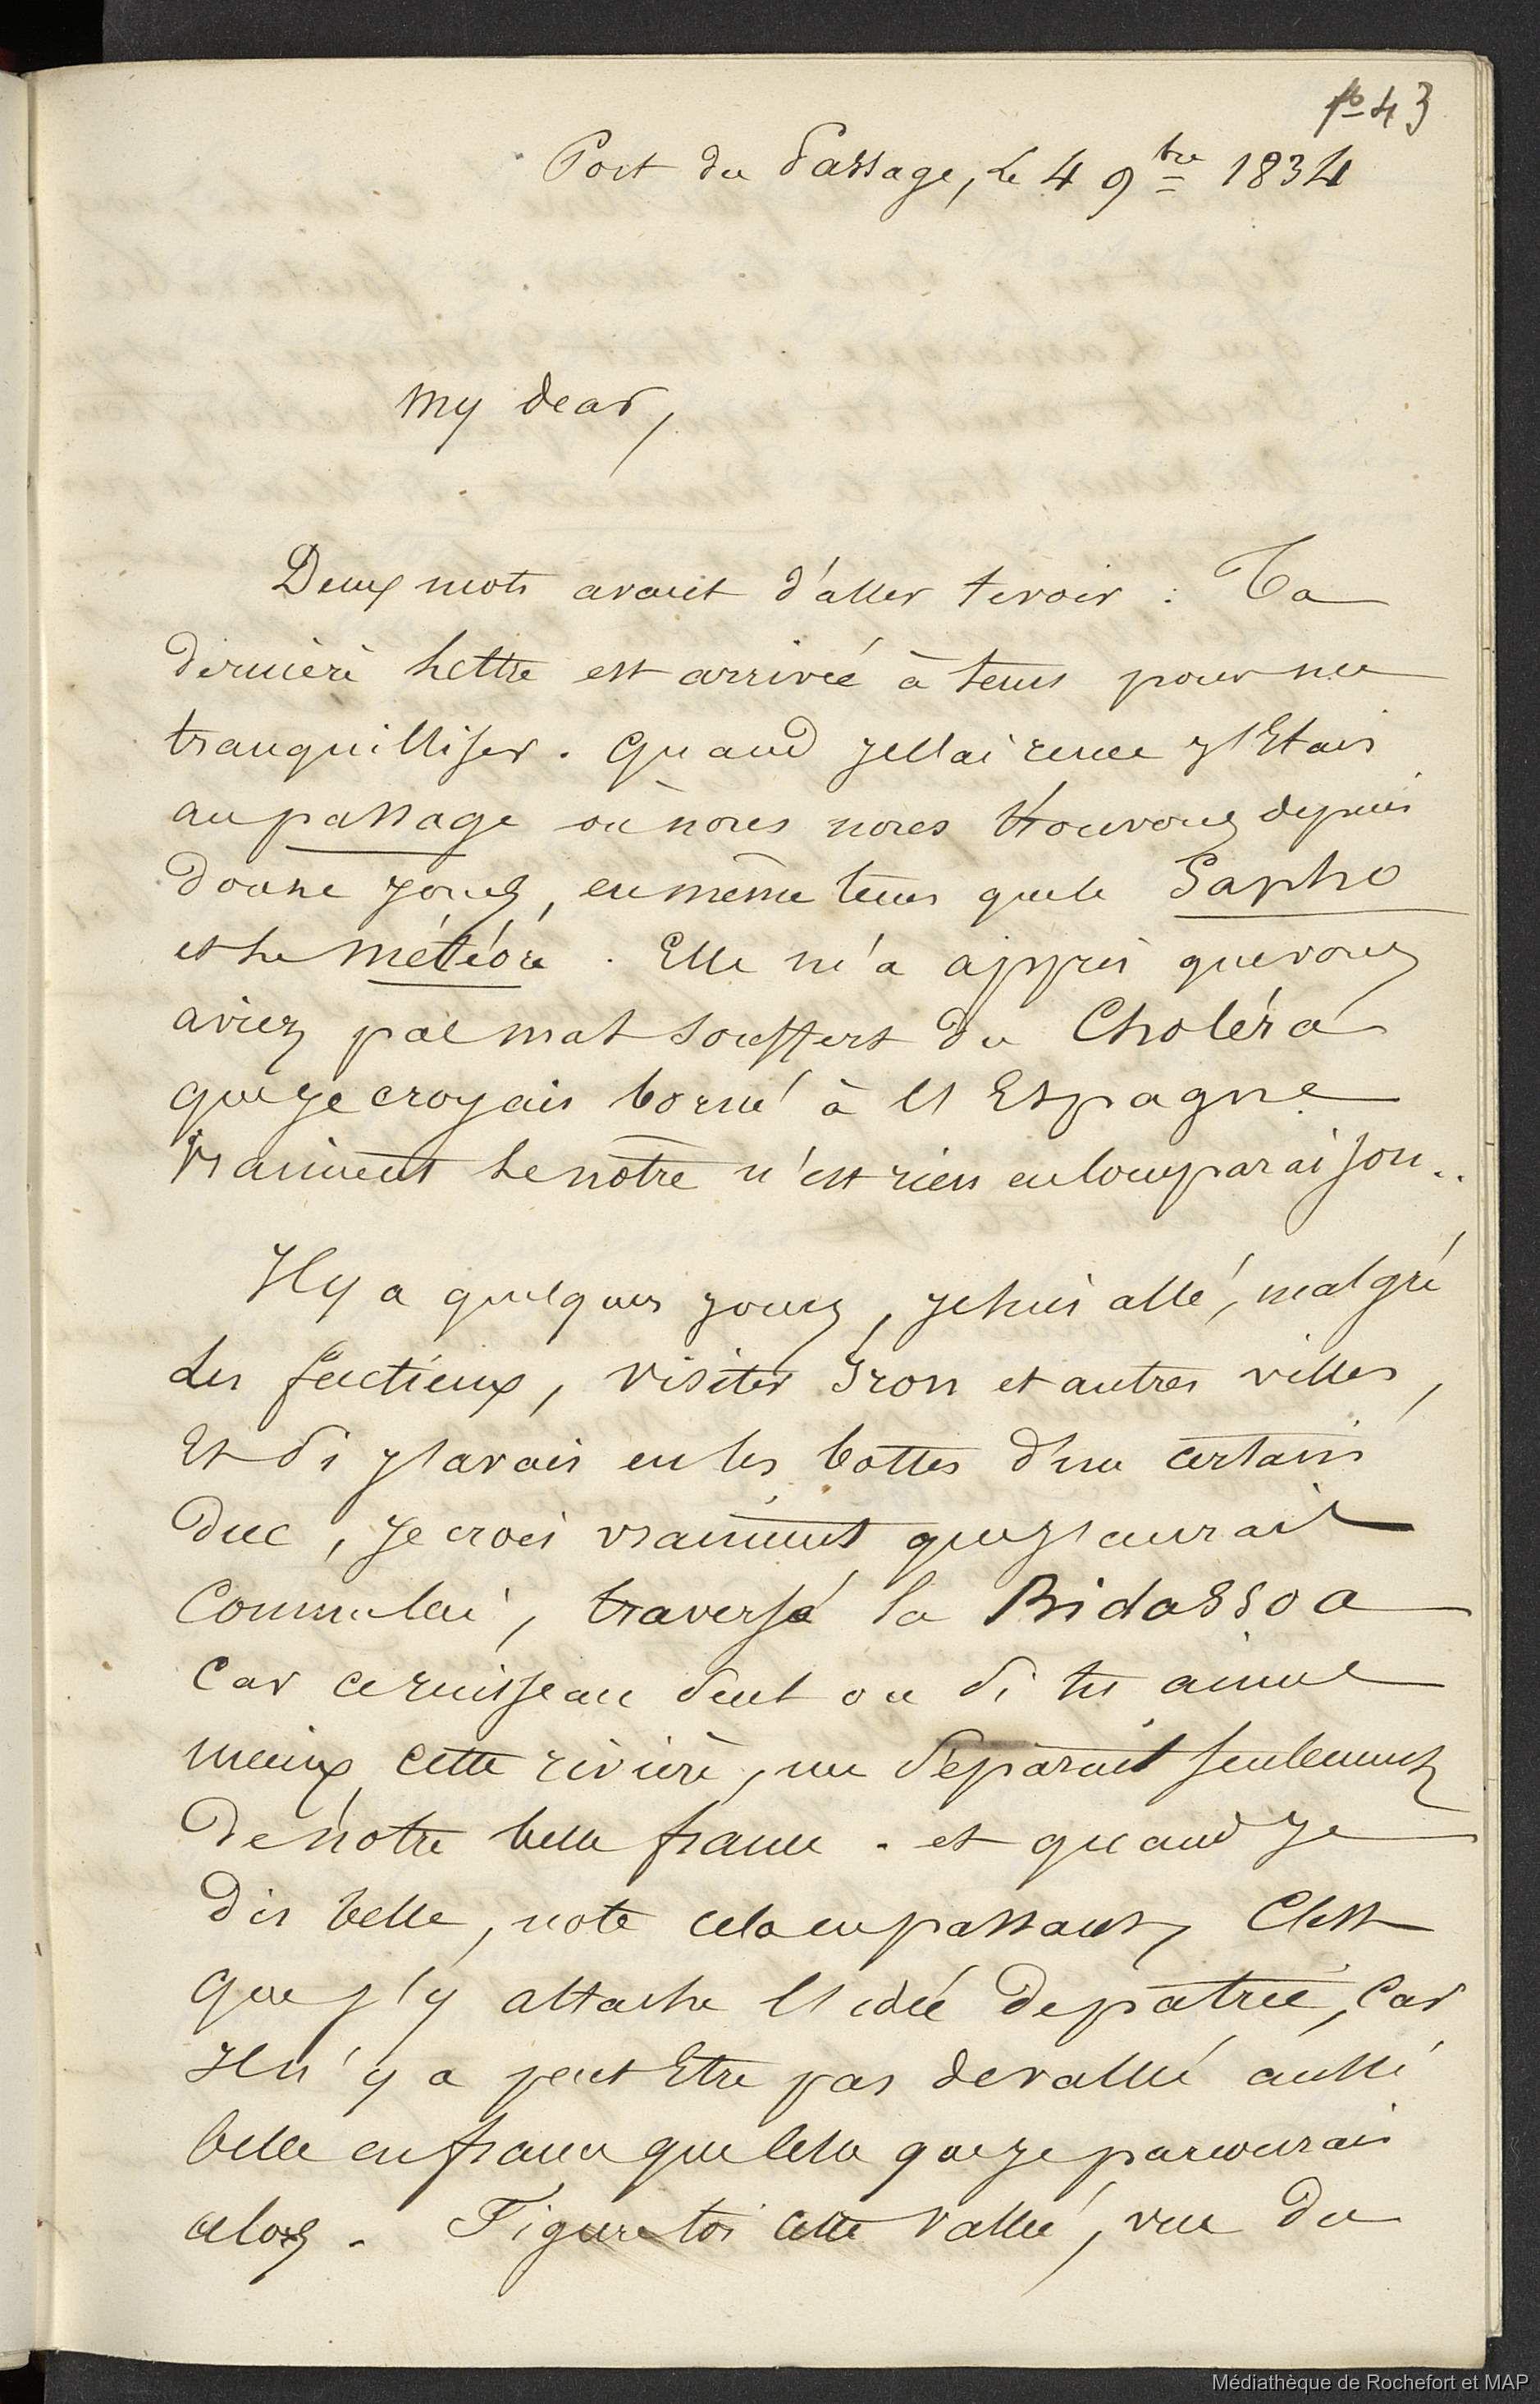 fo 43
Port du Passage, le 4 9bre 1834
My dear,
Deux mots avant d'aller te voir : Ta
dernière lettre est arrivée à tems pour me
tranquilliser. Quand je l'ai reçue j'Etais
au passage où nous nous trouvons depuis
douze jours, en même tems que la Sapho
et le météore. Elle m'a appris que vous
aviez pas mal souffert du Choléra
que je croyais borné à l'Espagne
Vraiment le nôtre n'est rien en comparaison..
Il y a quelques jours, je suis allé, malgré
les factieux, visiter Iron et autres villes,
Et si j'avais eu les bottes d'un certain
duc, je crois vraiment que j'aurais
Comme lui, traversé la Bidassoa
Car ce ruisseau seul ou si tu aimes
mieux cette rivière, me séparait seulement
de notre belle france. et quand Je
dis belle, note cela en passant, C'est
que j'y attache l'idée de patrie, Car
Il n'y a peut Etre pas de vallée aussi
belle en france que celle que je parcourais
alors. Figure toi cette vallée, vue du
Médiathèque de Rochefort et MAP